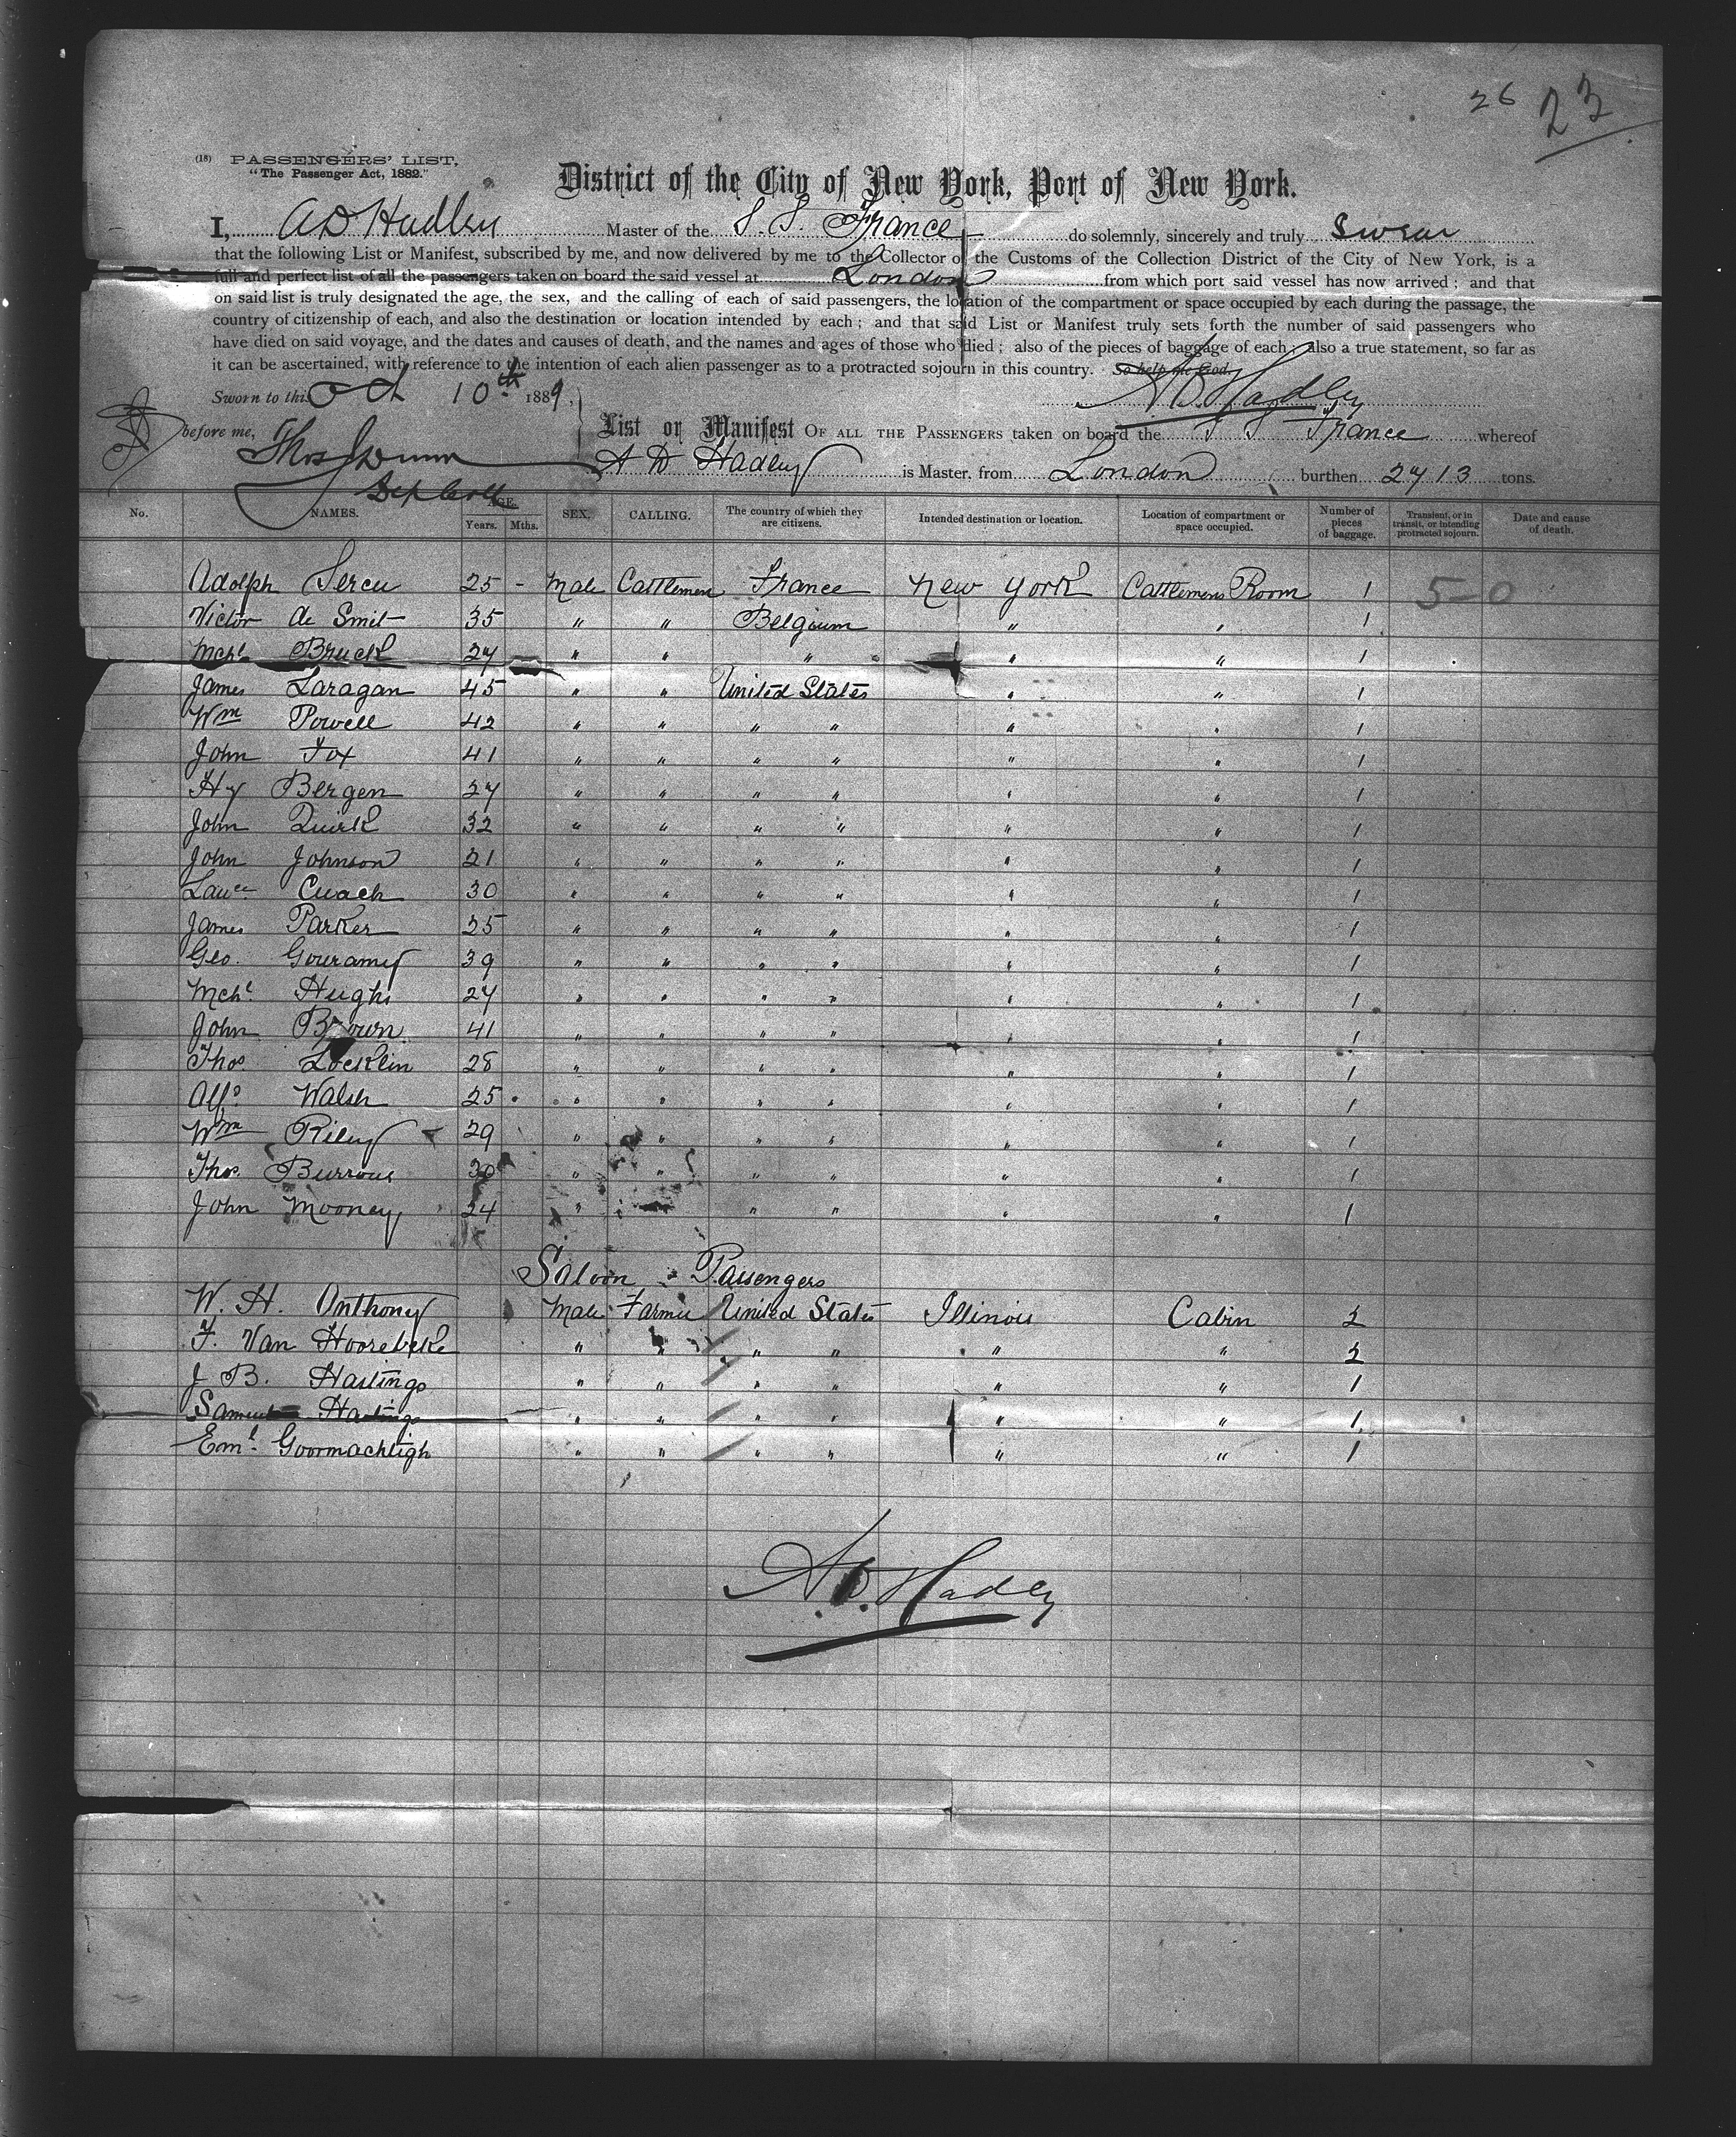 26 23
(18) PASSENGERS' LIST,
"The Passenger Act, 1882."
District of the City of New York, Port of New York.
I, A D Hadley Master of the S.S. France do solemnly, sincerely and truly swear
that the following List or Manifest, subscribed by me, and now delivered by me to the Collector of the Customs of the Collection District of the City of New York, is a
full and perfect list of all the passengers taken on board the said vessel at London from which port said vessel has now arrived; and that
on said list is truly designated the age, the sex, and the calling of each of said passengers, the location of the compartment or space occupied by each during the passage, the
country of citizenship of each, and also the destination or location intended by each; and that said List or Manifest truly sets forth the number of said passengers who
have died on said voyage, and the dates and causes of death, and the names and ages of those who died; also of the pieces of baggage of each; also a true statement, so far as
it can be ascertained, with reference to the intention of each alien passenger as to a protracted sojourn in this country. So help me God.
Sworn to this Oct 10th 1889, A.D. Hadley
before me, List or Manifest OF ALL THE PASSENGERS taken on board the S S France whereof
Thos J Dunn A D Hadley is Master, from London burthen 2713 tons.
Dep Coll
No. NAMES. AGE. Years. Mths. SEX. CALLING. The country of which they are citizens. Intended destination or location. Location of compartment or space occupied. Number of pieces of baggage. Transient, or in transit, or intending protracted sojourn. Date and cause of death.
Adolph Sercu 25 - Male Cattlemen France New York Cattlemens Room 1 5-0
Victor de Smit 35 " " Belgium " " 1
Mchl Bruck 27 " " " " " 1
James Laragan 45 " " United States " " 1
Wm Powell 42 " " " " " " 1
John Fox 41 " " " " " " 1
Hy Bergen 27 " " " " " " 1
John Quirk 32 " " " " " " 1
John Johnson 21 " " " " " " 1
Lawce Cuach 30 " " " " " " 1
James Parker 25 " " " " " " 1
Geo. Gouramy 39 " " " " " " 1
Mchl Hughs 27 " " " " " " 1
John Brown 41 " " " " " " 1
Thos Locklin 28 " " " " " " 1
Alfd Walsh 25 " " " " " " 1
Wm Riley 29 " " " " " " 1
Thos Burrows 30 " " " " " " 1
John Mooney 24 " " " " " " 1
Saloon Passengers
W. H. Anthony Male Farmer United States Illinois Cabin 2
F. Van Hoorebeke " " " " " " 2
J B. Hastings " " " " " " 1
Samuel Hastings " " " " " " 1
Eml Goormachtigh " " " " " " 1
A.D. Hadley